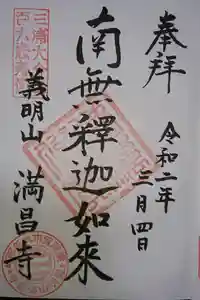 奉拝
令和二年
三月四日
南無釋迦如來
義明山
満昌寺